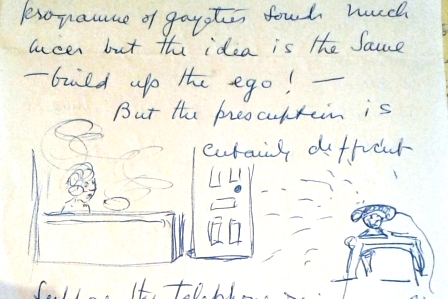 programme of gayeties sounds much
nicer but the idea is the same
— build up the ego! —
But the prescription is
certainly different
Suppose the telephone